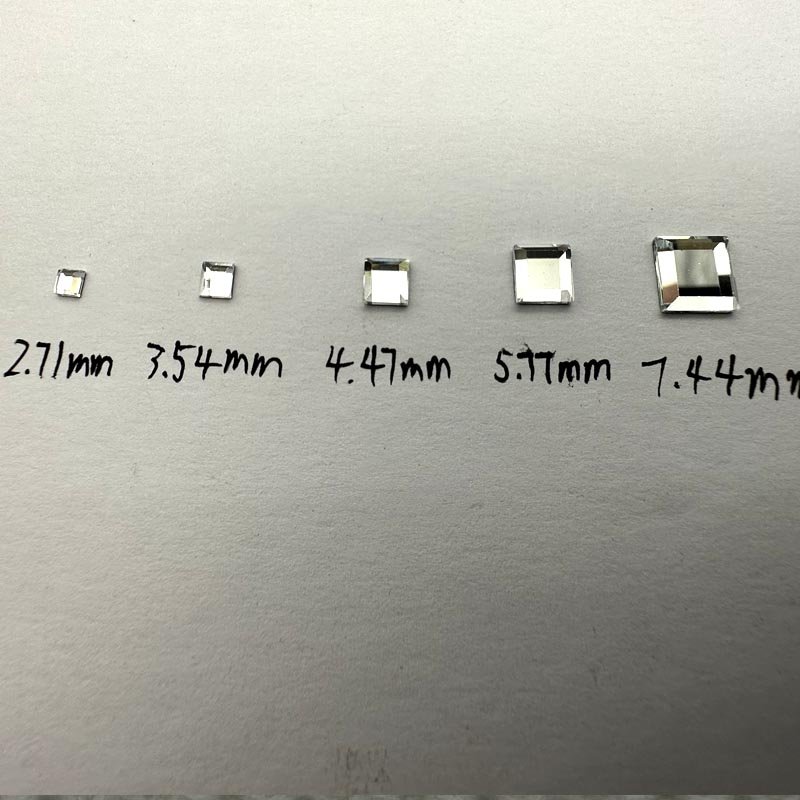 2.71mm 3.54mm 4.47mm 5.77mm 7.44mm